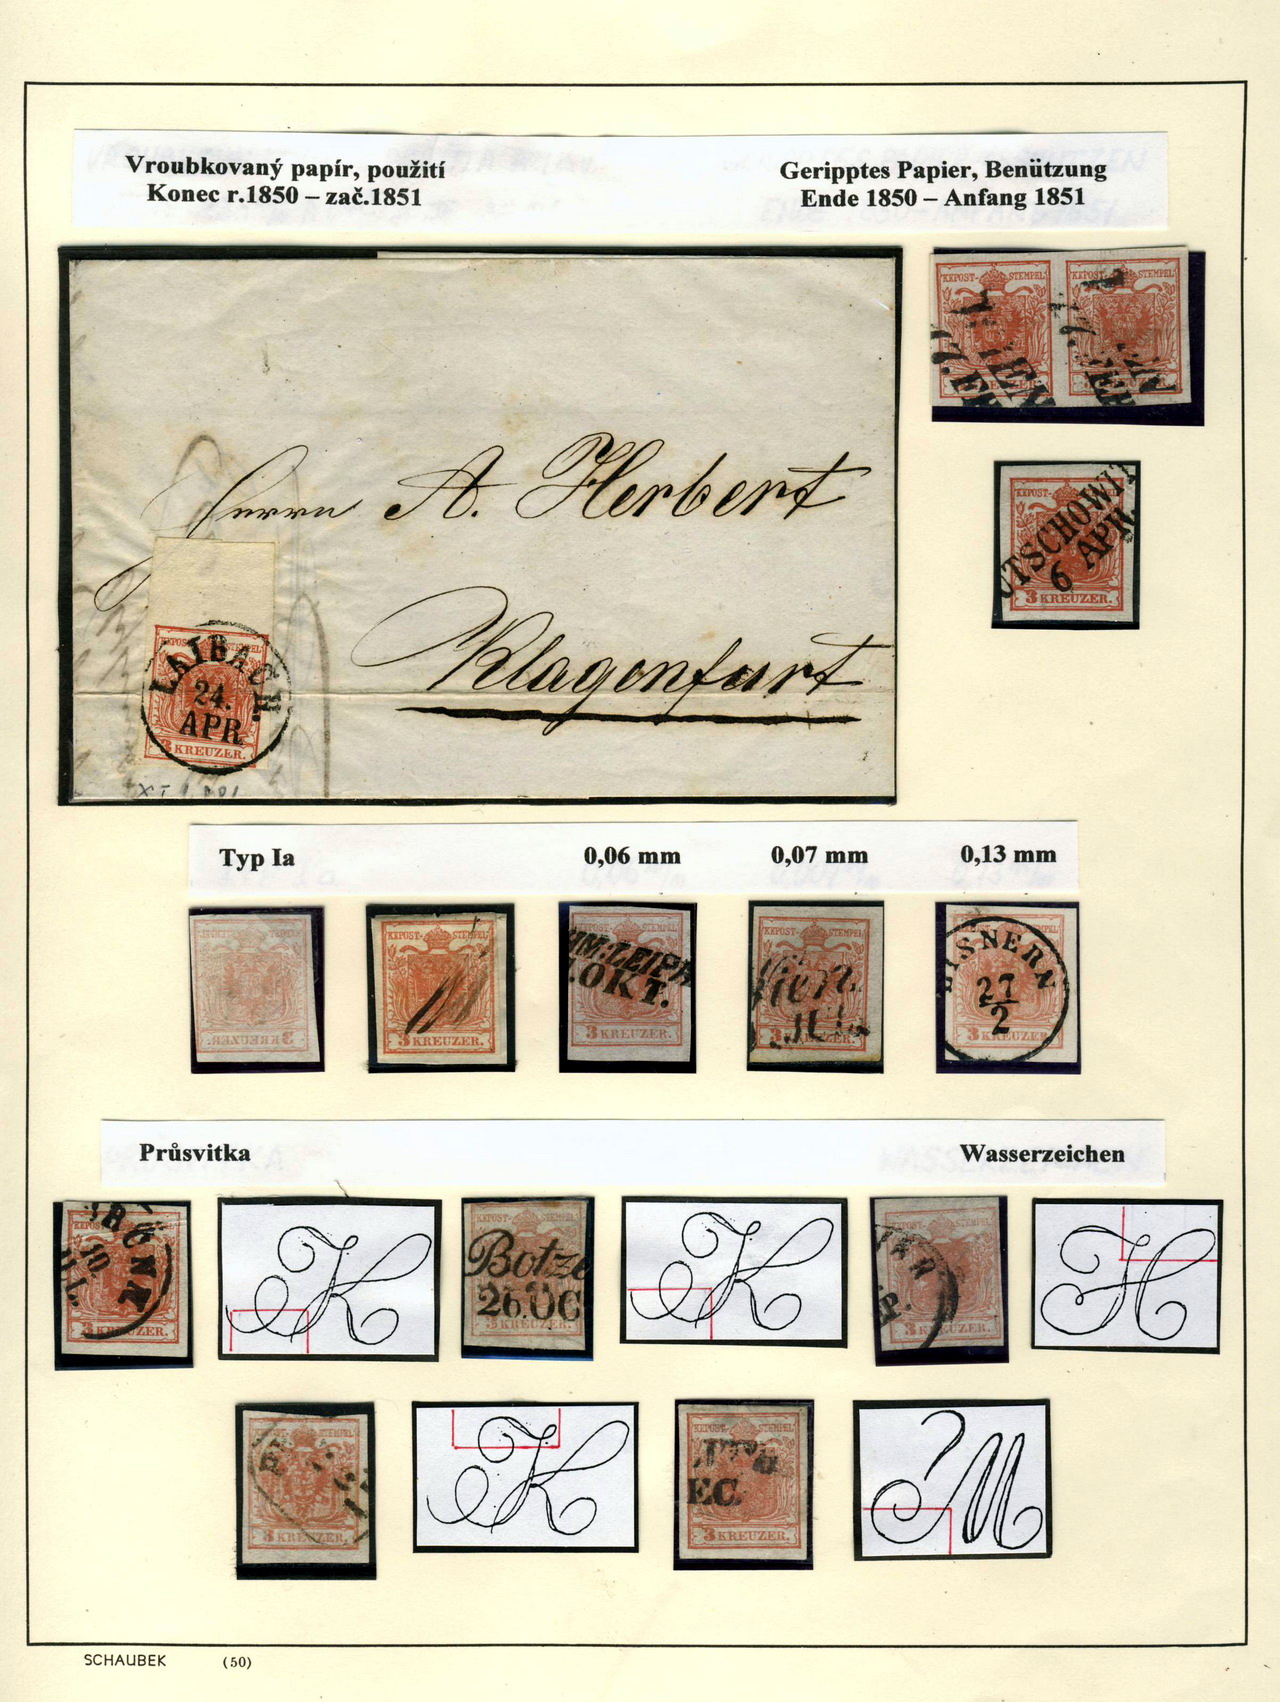 Vroubkovaný papír, použití
Konec r.1850 – zač.1851
Geripptes Papier, Benützung
Ende 1850 – Anfang 1851
KKPOST-STEMPEL
3 KREUZER.
KKPOST-STEMPEL
3 KREUZER.
UTSCHOWIT
6 APR
3 KREUZER.
Herrn A. Herbert
Klagenfurt
LAIBACH.
24.
APR
3 KREUZER.
Typ Ia
0,06 mm
0,07 mm
0,13 mm
KKPOST-STEMPEL
3 KREUZER.
HM:LEIPA
.OKT.
3 KREUZER.
KKPOST-STEMPEL
Wien
JUL
3 KREUZER.
EISNERN
27
2
3 KREUZER.
Průsvitka
Wasserzeichen
BRÜNN
10
3 KREUZER.
K
KKPOST-STEMPEL
Botze
26.OC
3 KREUZER.
K
KKPOST-STEMPEL
3 KREUZER.
H
KKPOST-STEMPEL
3 KREUZER.
K
KKPOST-STEMPEL
EC.
3 KREUZER.
M
SCHAUBEK (50)